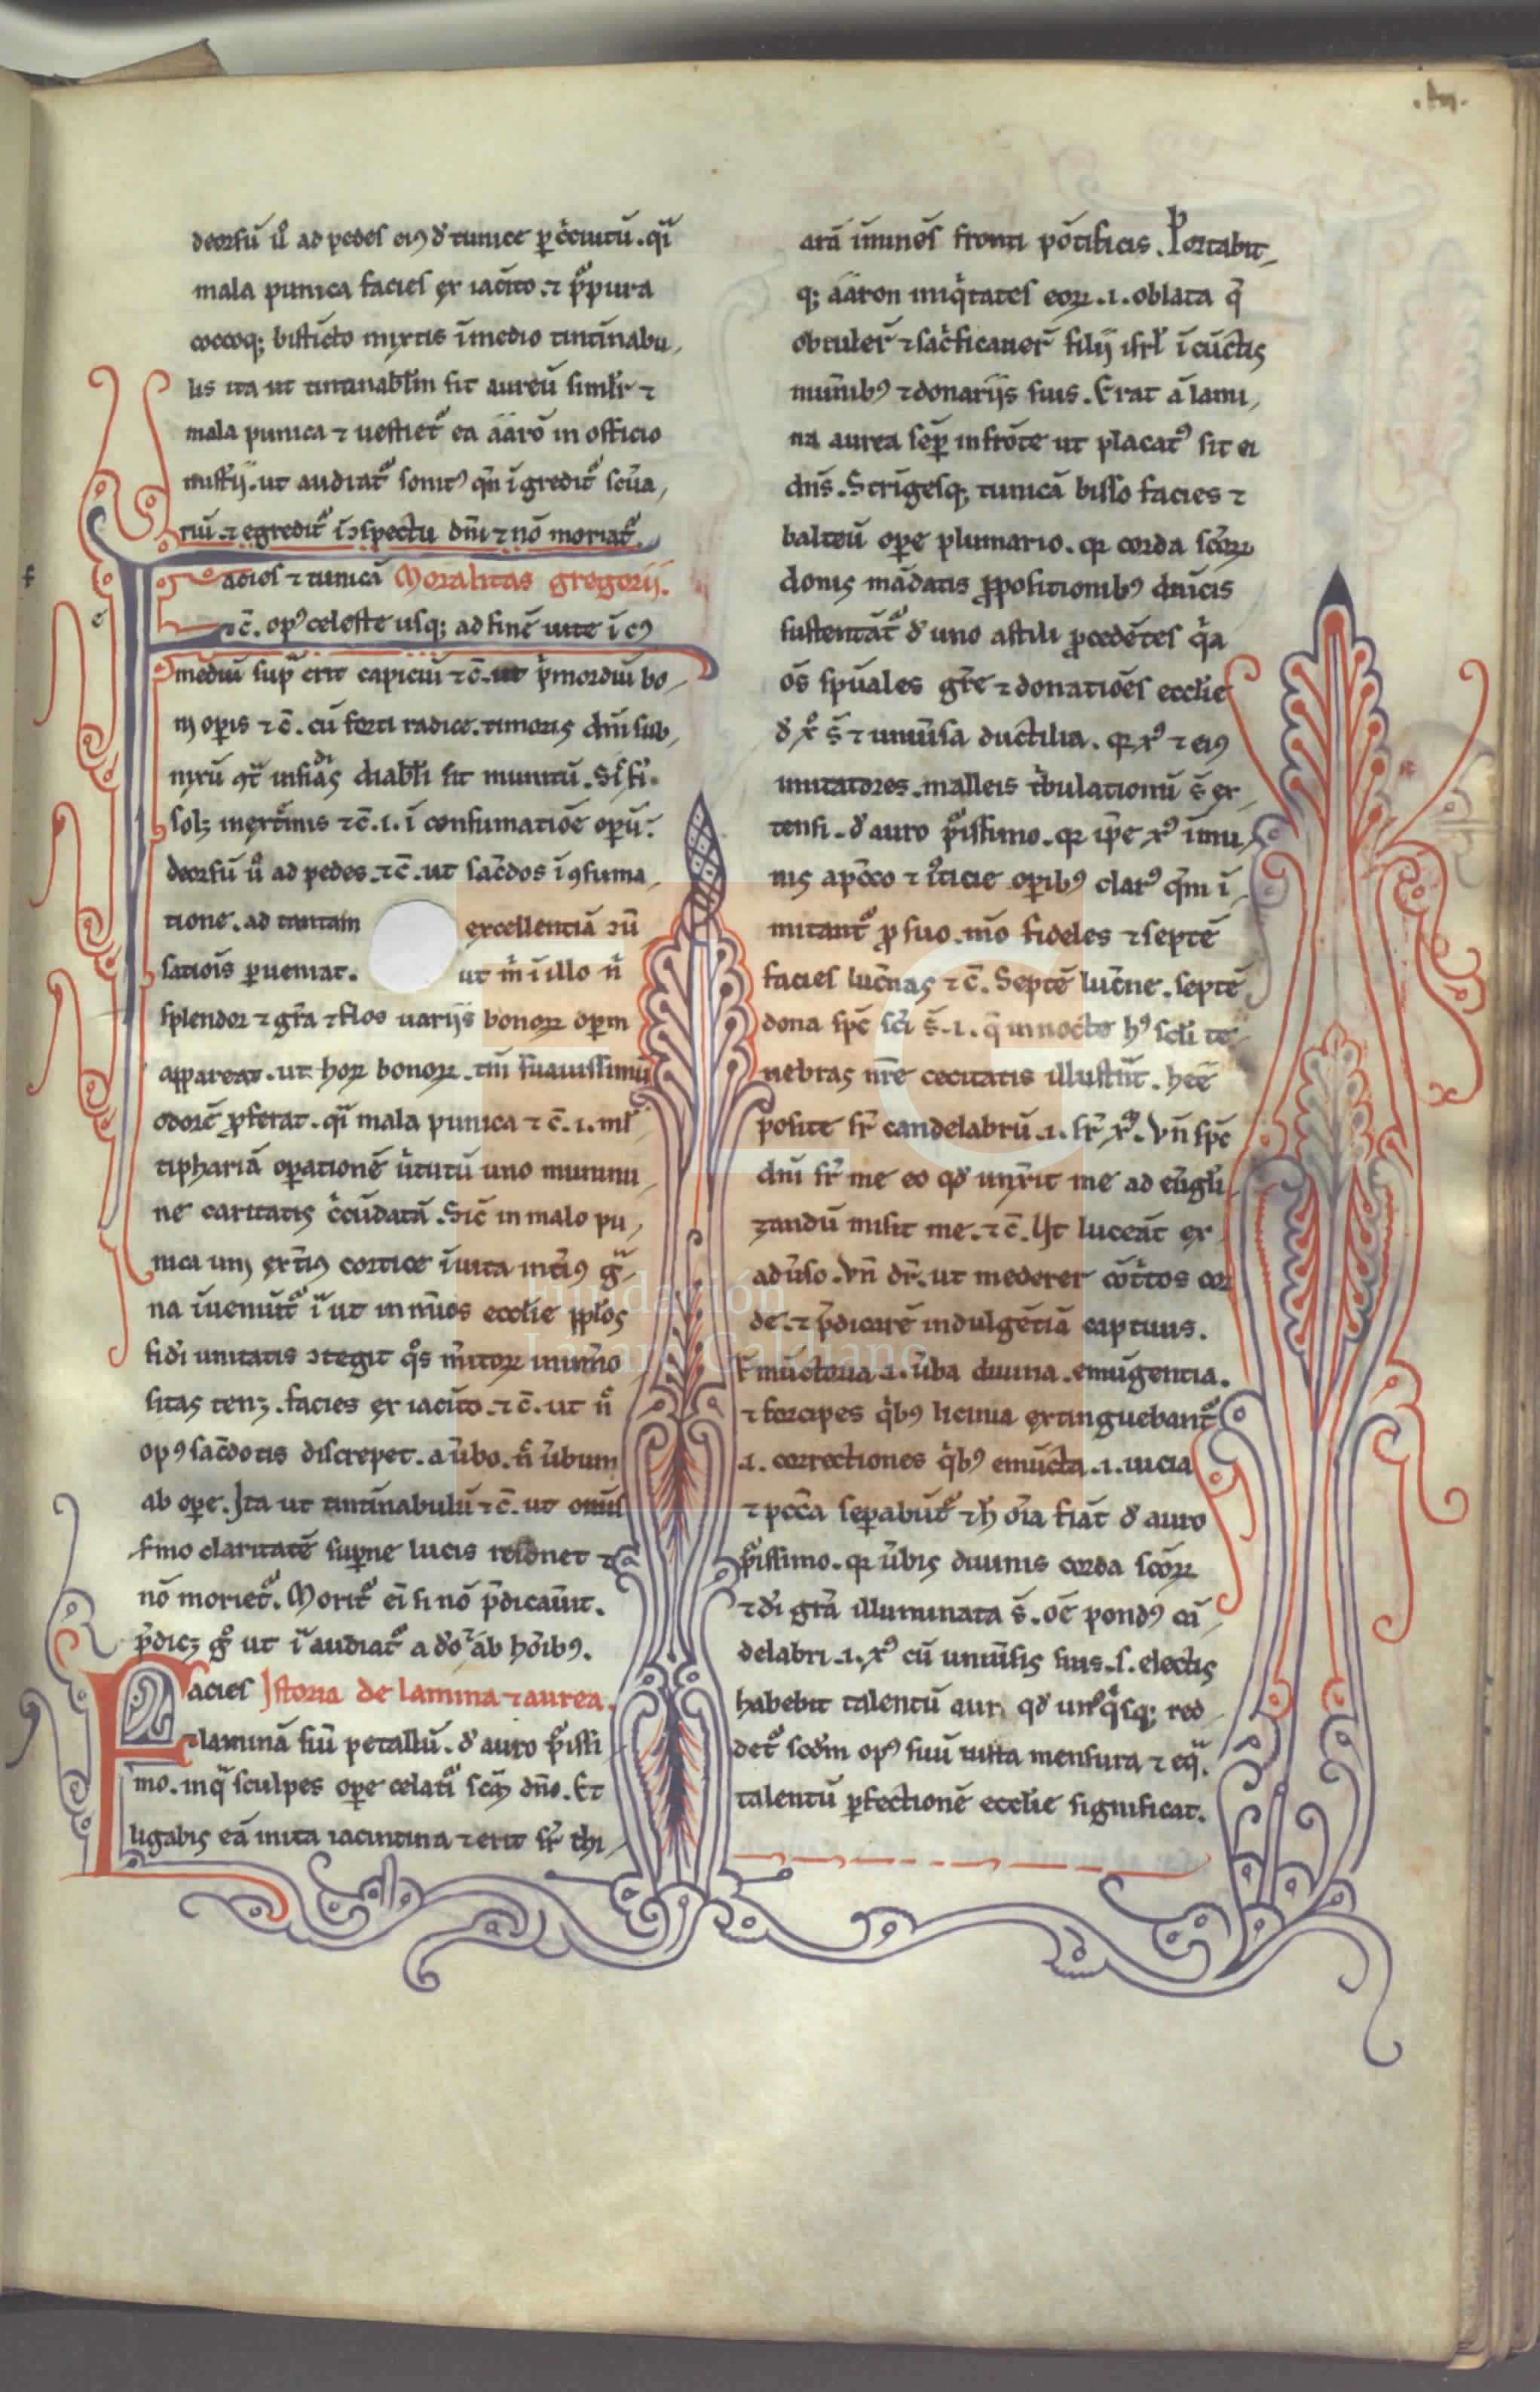 deorsū ů ad pedes eiꝰ d̓ tunice ꝑ c̓cuitū . qͣi
mala punica facies ex iacīto . ⁊ pᷣpura
coccoqꝫ bistīcto mixtis ī medio tintīnabu
lis ita ut tintinablm̄ sit aureū simlr̄ ⁊
mala punica ⁊ uestiet᷑ ea ááró in officio
mist̄ii . ut audiat᷑ sonitꝰ qn̄ īgredit᷑ sc̄ua
riū . ⁊ egredit᷑ īↄspectu dn̄i ⁊ nō moriat᷑ .
acies ⁊ tunicā Moralitas gregorij .
⁊c̄ . opꝰ celeste usqꝫ ad finē uite ī cꝰ
mediū supͣ erit capiciū ⁊ c̄ . ut pͥmordiū bo
ni oꝑis ⁊ c̄ . cū forti radice . timoris dn̄i sub
nixū ꝯtͣ insidias diabl̄i sit munitū . Si fi
solꝫ in extͥmis ⁊ c̄ . i . ī consumatiōe oꝑū .
deorsū ů ad pedes . ⁊ c̄ . ut sac̄dos ī ꝯsuma
tione . ad tantam excellentiā ↄū
satiōis ꝑueniat . ut m̄ ī illo n̄
splendor ⁊ gr̄a ⁊ flos uarijs bonoꝝ oꝑm
appareat . ut hoꝝ bonoꝝ . tm̄ suauissimū
odorē ꝓferat . qͣi mala punica ⁊ c̄ . i . ml̄
tiphariā oꝑationē ůtutū uno munimi
ne caritatis c̓cūdatā . Sic̄ in malo pu
nica uniꝰ ext̄iꝰ cortice īuita int̄iꝰ gͣ
na īueniūt᷑ iͣ ut in nūos ecclie ppl̄os
fidi unitatis ↄtegit qͦs m̄itoꝝ inumō
sitas tenꝫ . facies ex iacīto . ⁊ c̄ . ut n̄
opꝰ sac̄dotis discrepet . a ůbo . n̄ ůbum
ab oꝑe . Ita ut tintīnabulū ⁊ c̄ . ut omīs
fino claritatē suꝑne lucis resonet ⁊
nō moriet᷑ . Morit᷑ ei̅ si nō p̄dicauīt .
p̄dicꝫ gͦ ut iͣ audiat᷑ a dō ⁊ ab hōibꝰ .
acies Istoria de lamina ⁊ aurea .
⁊ laminā siū petallū . d̓ auro pᷣissi
mo . inqͣ sculpes oꝑe celatͥ scm̄ dn̄o . Et
ligabis eā uita iacintina ⁊ erit sr̄ thi
arā īminēs fronti pōtificis . Portabit
qꝫ ááron iniqͥtates eoꝝ . i . oblata q̄
obtuler̄ ⁊ sac̓ficauer̄ filij isrl̄ ī cūctis
mun̄ibꝰ ⁊ donarijs suis . Erat ā lami
na aurea sēꝑ in frōte ut placatꝰ sit ei
dn̄s . Strīgesqꝫ tunicā bisso facies ⁊
balteū oꝑe plumario . qꝛ corda sc̄oꝝ
donis mādatis ꝓpositionibꝰ dn̄icis
sustentāt᷑ d̓ uno astili ꝓcedētes qͥa
ōs sp̄uales gr̄e ⁊ donatiōes ecclie
d̓ xͦ s̄ ⁊ uniūsa ductilia . qꝛ xꝰ ⁊ eiꝰ
imitatores . malleis tͥbulationū s̄ ex
tensi . d̓ auro pᷣissimo . qꝛ ip̄e xꝰ īmu
nis ap̄cc̄o ⁊ iͦticie oꝑibꝰ clarꝰ q̄m ī
mitant᷑ ꝓ suo . mō fideles ⁊ septē
facies luc̄nas ⁊ c̄ . Septē luc̄ne . septē
dona sp̄c sc̄i s̄ . i . q̄ in nocte hꝰ scl̄i te
nebras nr̄e cecitatis illustn̄t . hec̄
posite sr̄ candelabrū . i . sr̄ xͫ . Vn̄ sp̄c
dn̄i sr̄ me eo qd̓ unx̄it me ad eūgl̄i
zandū misit me . ⁊ c̄ . Ut luceāt ex
adůso . Vn̄ dr̄ . ut mederer cōtͥtos cor
de . ⁊ p̄dicarē indulgētiā captiuis .
Emūctoria . i . ůba diuina . emūgentia .
⁊ forcipes qͥbꝰ licinia extinguebant᷑
. i . correctiones qͥbꝰ emūcta . i . uicia
⁊ pcc̄a seꝑabūt᷑ ⁊ h̄ oīa fiāt d̓ auro
pᷣissimo . qꝛ ůbis diuinis corda sc̄oꝝ
⁊ di gr̄a illuminata s̄ . oē pondꝰ cā
delabri . i . xꝰ cū uniūsis suis . s . electis
habebit talentū auri qd̓ unꝰqͥsqꝫ red
det᷑ scd̄m opꝰ suū iuxta mensura ⁊ eqͣ .
talentū ꝑfectionē ecclie significat .
Fundación
Lázaro Galdiano